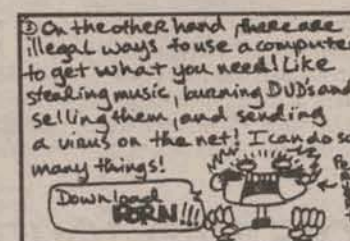 ② On the other hand there are
illegal ways to use a computer
to get what you need! Like
stealing music, burning DVD's and
selling them, and sending
a virus on the net! I can do so
many things!
Download
PORN!!!